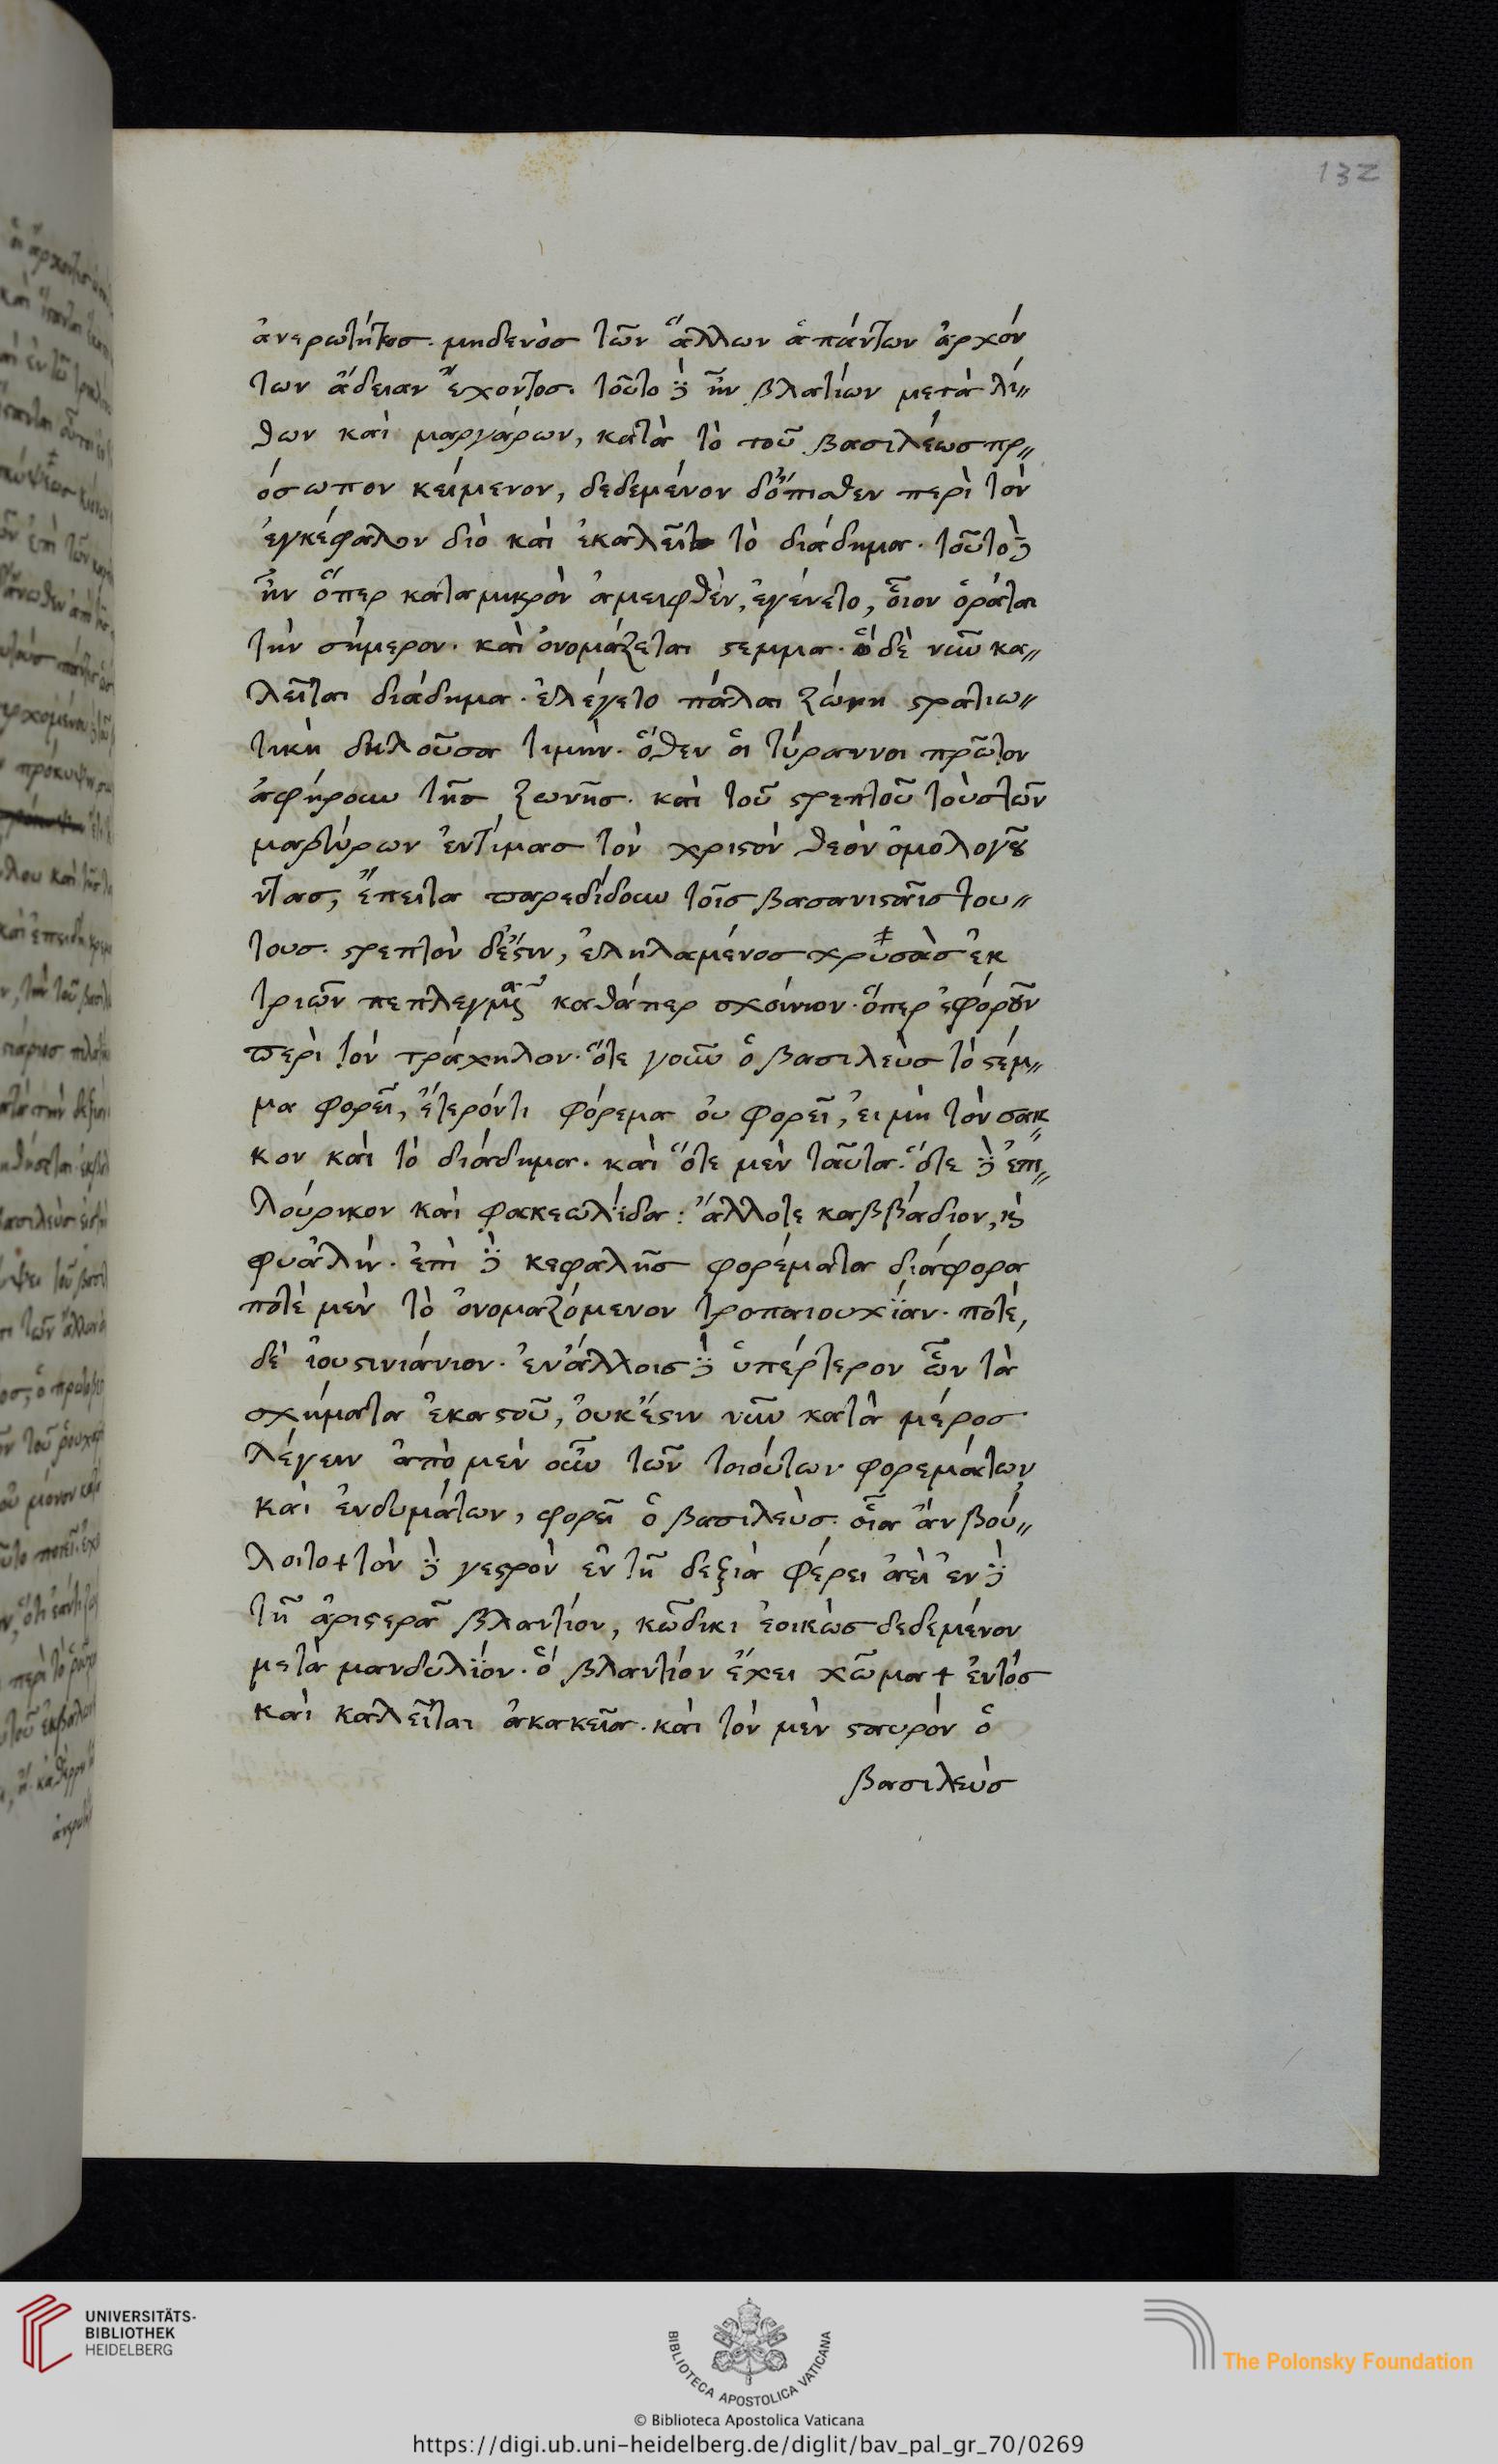 132
ἀνερωτήτοσ. μηδενὸσ τῶν ἄλλων ἁπάντων ἀρχόν
των ἄδειαν ἔχοντοσ. τοῦτο δὲ ἦν βλατίων μετὰ λί〃
θων καὶ μαργάρων, κατὰ τὸ τοῦ βασιλέωσ πρ〃
όσωπον κείμενον, δεδεμένον δ' ὄπισθεν περὶ τὸν
ἐγκέφαλον διὸ καὶ ἐκαλεῖτο τὸ διάδημα. τοῦτο δὲ
ἦν ὅπερ καταμικρὸν ἀμειφθὲν, ἐγένετο, οἷον ὁρᾶται
τὴν σήμερον. καὶ ὀνομάζεται ϛέμμα. ὃ δὲ νῦν κα〃
λεῖται διάδημα. ἐλέγετο πάλαι ζώνη ϛρατιω〃
τικὴ δηλοῦσα τιμὴν. ὅθεν οἱ τύραννοι πρῶτον
ἀφήρουν τῆσ ζωνῆσ. καὶ τοῦ ϛρεπτοῦ τοὺσ τῶν
μαρτύρων ἐντίμασ τὸν χριϛὸν θεὸν ὁμολογȣ
ντασ, ἔπειτα παρεδίδουν τοῖσ βασανιϛαῖσ του〃
τουσ. ϛρεπτὸν δ' ἔϛιν, ἐληλαμένοσ χρυσὰσ ἐκ
τριῶν πεπλεγμ καθάπερ σχοίνιον. ὅπερ ἐφόρουν
περὶ τὸν τράχηλον. ὅτε γοῦν ὁ βασιλεὺσ τὸ ϛέμ〃
μα φορεῖ, ἕτερόν τι φόρεμα οὐ φορεῖ, εἰ μὴ τὸν σακ〃
κον καὶ τὸ διάδημα. καὶ ὅτε μὲν ταῦτα. ὅτε δὲ ἐπι〃
λούρικον καὶ φακεωλίδα: ἄλλοτε καββάδιον, κὶ
φυάλὴν. ἐπὶ δὲ κεφαλῆσ φορέματα διάφορα
ποτὲ μὲν τὸ ὀνομαζόμενον τροπαιουχϊάν. ποτέ,
δὲ ἰουϛινιάνιον. ἐν ἄλλοισ δὲ ὑπέρτερον ὧν τὰ
σχήματα ἑκαϛοῦ, οὐκ ἔϛιν νῦν κατὰ μέροσ
λέγειν ἀπὸ μὲν οὖν τῶν τοιούτων φορεμάτων
καὶ ἐνδυμάτων, φορεῖ ὁ βασιλεὺσ. οἷα ἂν βού〃
λοιτο + τὸν δὲ γεϛρὸν ἐν τῇ δεξιᾷ φέρει ἀεὶ ἐν δὲ
τῇ ἀριϛερᾷ βλαντίον, κώδικι ἐοικὼσ δεδεμένον
μετὰ μανδυλϊον. ὃ βλαντίον ἔχει χῶμα + ἐντὸσ
καὶ καλεῖται ἀκακεία. καὶ τὸν μὲν ϛαυρὸν ὁ
βασιλεὺσ
UNIVERSITÄTS-
BIBLIOTHEK
HEIDELBERG
BIBLIOTECA APOSTOLICA VATICANA
The Polonsky Foundation
© Biblioteca Apostolica Vaticana
https://digi.ub.uni-heidelberg.de/diglit/bav_pal_gr_70/0269